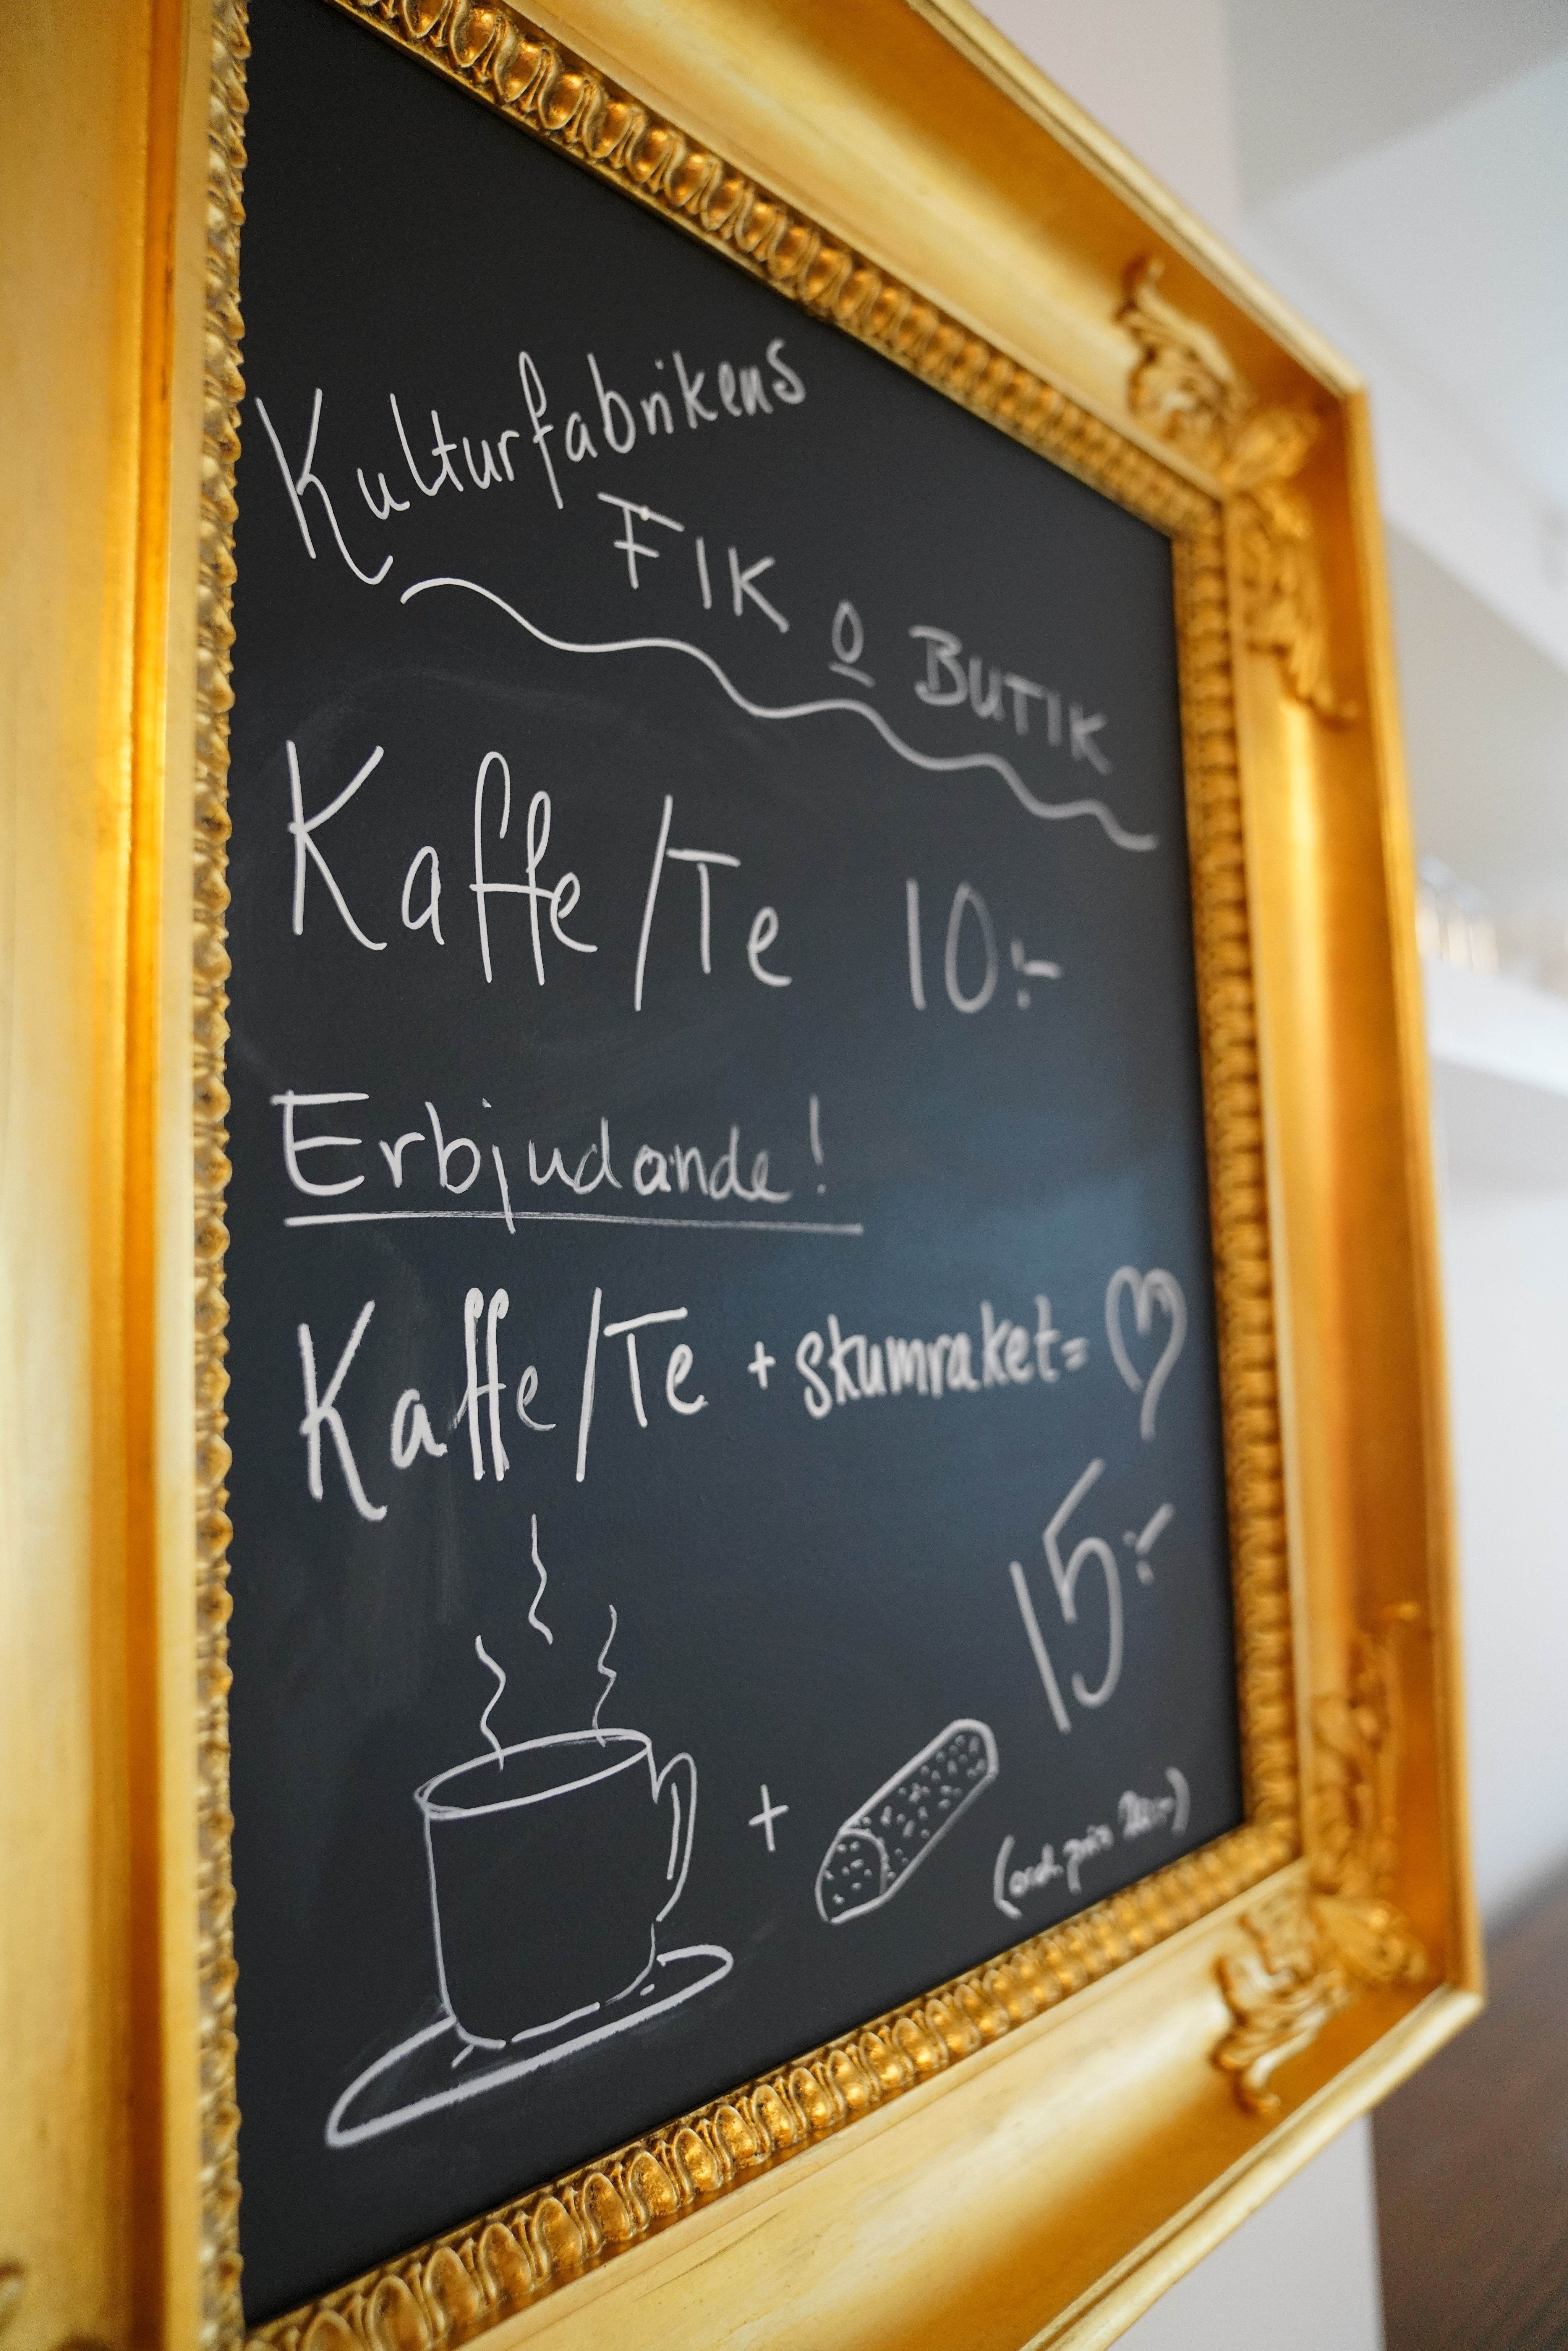 Kulturfabrikens
FIK o BUTIK
Kaffe/Te 10:-
Erbjudande!
Kaffe/Te + skumraket = ♡
15:-
+
(ord. pris